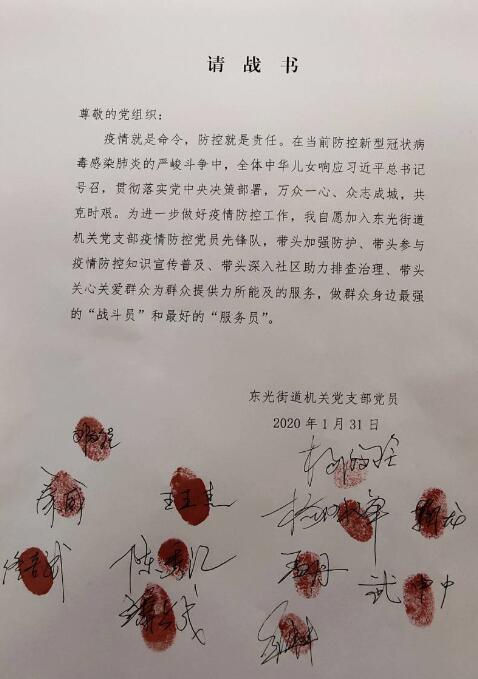 请战书
尊敬的党组织：
疫情就是命令，防控就是责任。在当前防控新型冠状病
毒感染肺炎的严峻斗争中，全体中华儿女响应习近平总书记
号召，贯彻落实党中央决策部署，万众一心、众志成城，共
克时艰。为进一步做好疫情防控工作，我自愿加入东光街道
机关党支部疫情防控党员先锋队，带头加强防护、带头参与
疫情防控知识宣传普及、带头深入社区助力排查治理、带头
关心关爱群众为群众提供力所能及的服务，做群众身边最强
的“战斗员”和最好的“服务员”。
东光街道机关党支部党员
2020年1月31日